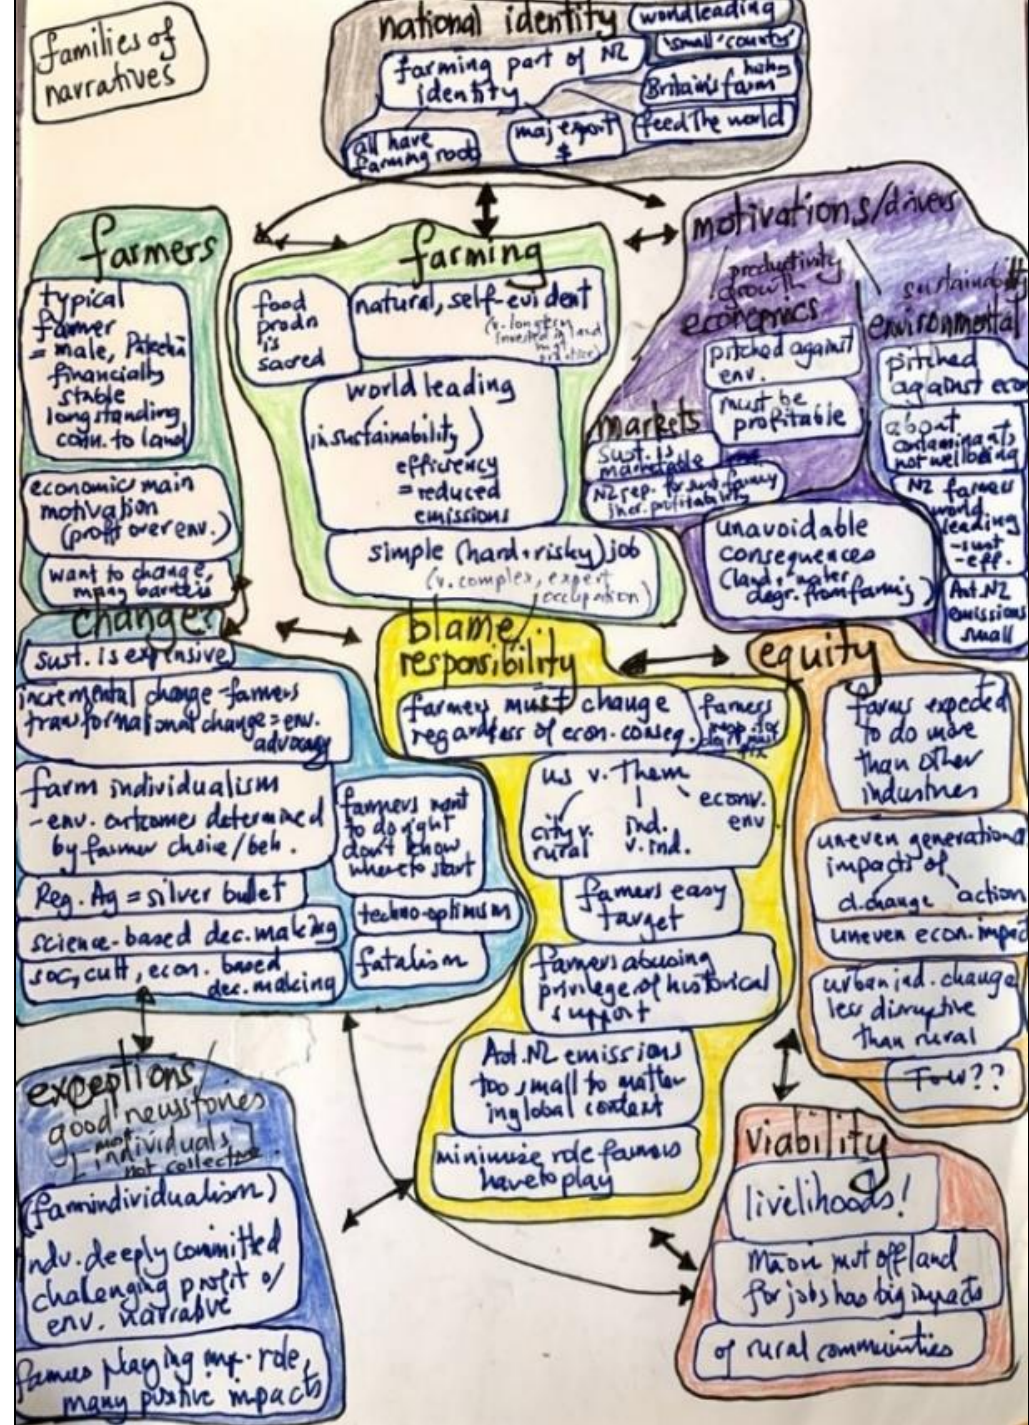 families of
narratives
national identity
farming part of NZ
identity
all have
farming roots
maj export
$
world leading
'small' country
Britain's farm
feed the world
farmers
typical
farmer
= male, Pākehā
financially
stable
longstanding
conn. to land
economic main
motivation
(profit over env.)
want to change,
many barriers
farming
food
prodn
is
sacred
natural, self-evident
(v. long term
invested in land
world leading
(in sustainability)
efficiency
= reduced
emissions
simple (hard + risky) job
(v. complex, expert
occupation)
motivations/drivers
productivity
growth
economics
pitched against
env.
must be
profitable
markets
sust. is
marketable
NZ rep. for sust. farming
incr. profitability
sustainability
environmental
pitched
against econ
about
contaminants
not wellbeing
NZ farmers
world
leading
-sust
-eff.
Aot. NZ
emissions
small
unavoidable
consequences
(land + water
degr. from farming)
change?
sust. is expensive
incremental change - farmers
transformational change = env.
advocacy
farm individualism
- env. outcomes determined
by farmer choice/beh.
farmers want
to do right
don't know
where to start
Reg. Ag = silver bullet
techno-optimism
science-based dec. making
soc, cult, econ. based
dec. making
fatalism
blame
responsibility
farmers must change
regardless of econ. conseq.
farmers
resp. for
us v. Them
city v.
rural
ind.
v. ind.
econ v.
env
famers easy
target
farmers abusing
privilege of historical
support
Aot. NZ emissions
too small to matter
in global context
minimise role farmers
have to play
equity
farms expected
to do more
than other
industries
uneven generational
impacts of
cl. change
action
uneven econ. impact
urban ind. change
less disruptive
than rural
ToW??
exceptions/
good news stories
individuals
not collective
(farm individualism)
indv. deeply committed
challenging profit o/
env. narrative
farmers playing imp. role,
many positive impacts
viability
livelihoods!
Māori mvt off land
for jobs has big impacts
of rural communities